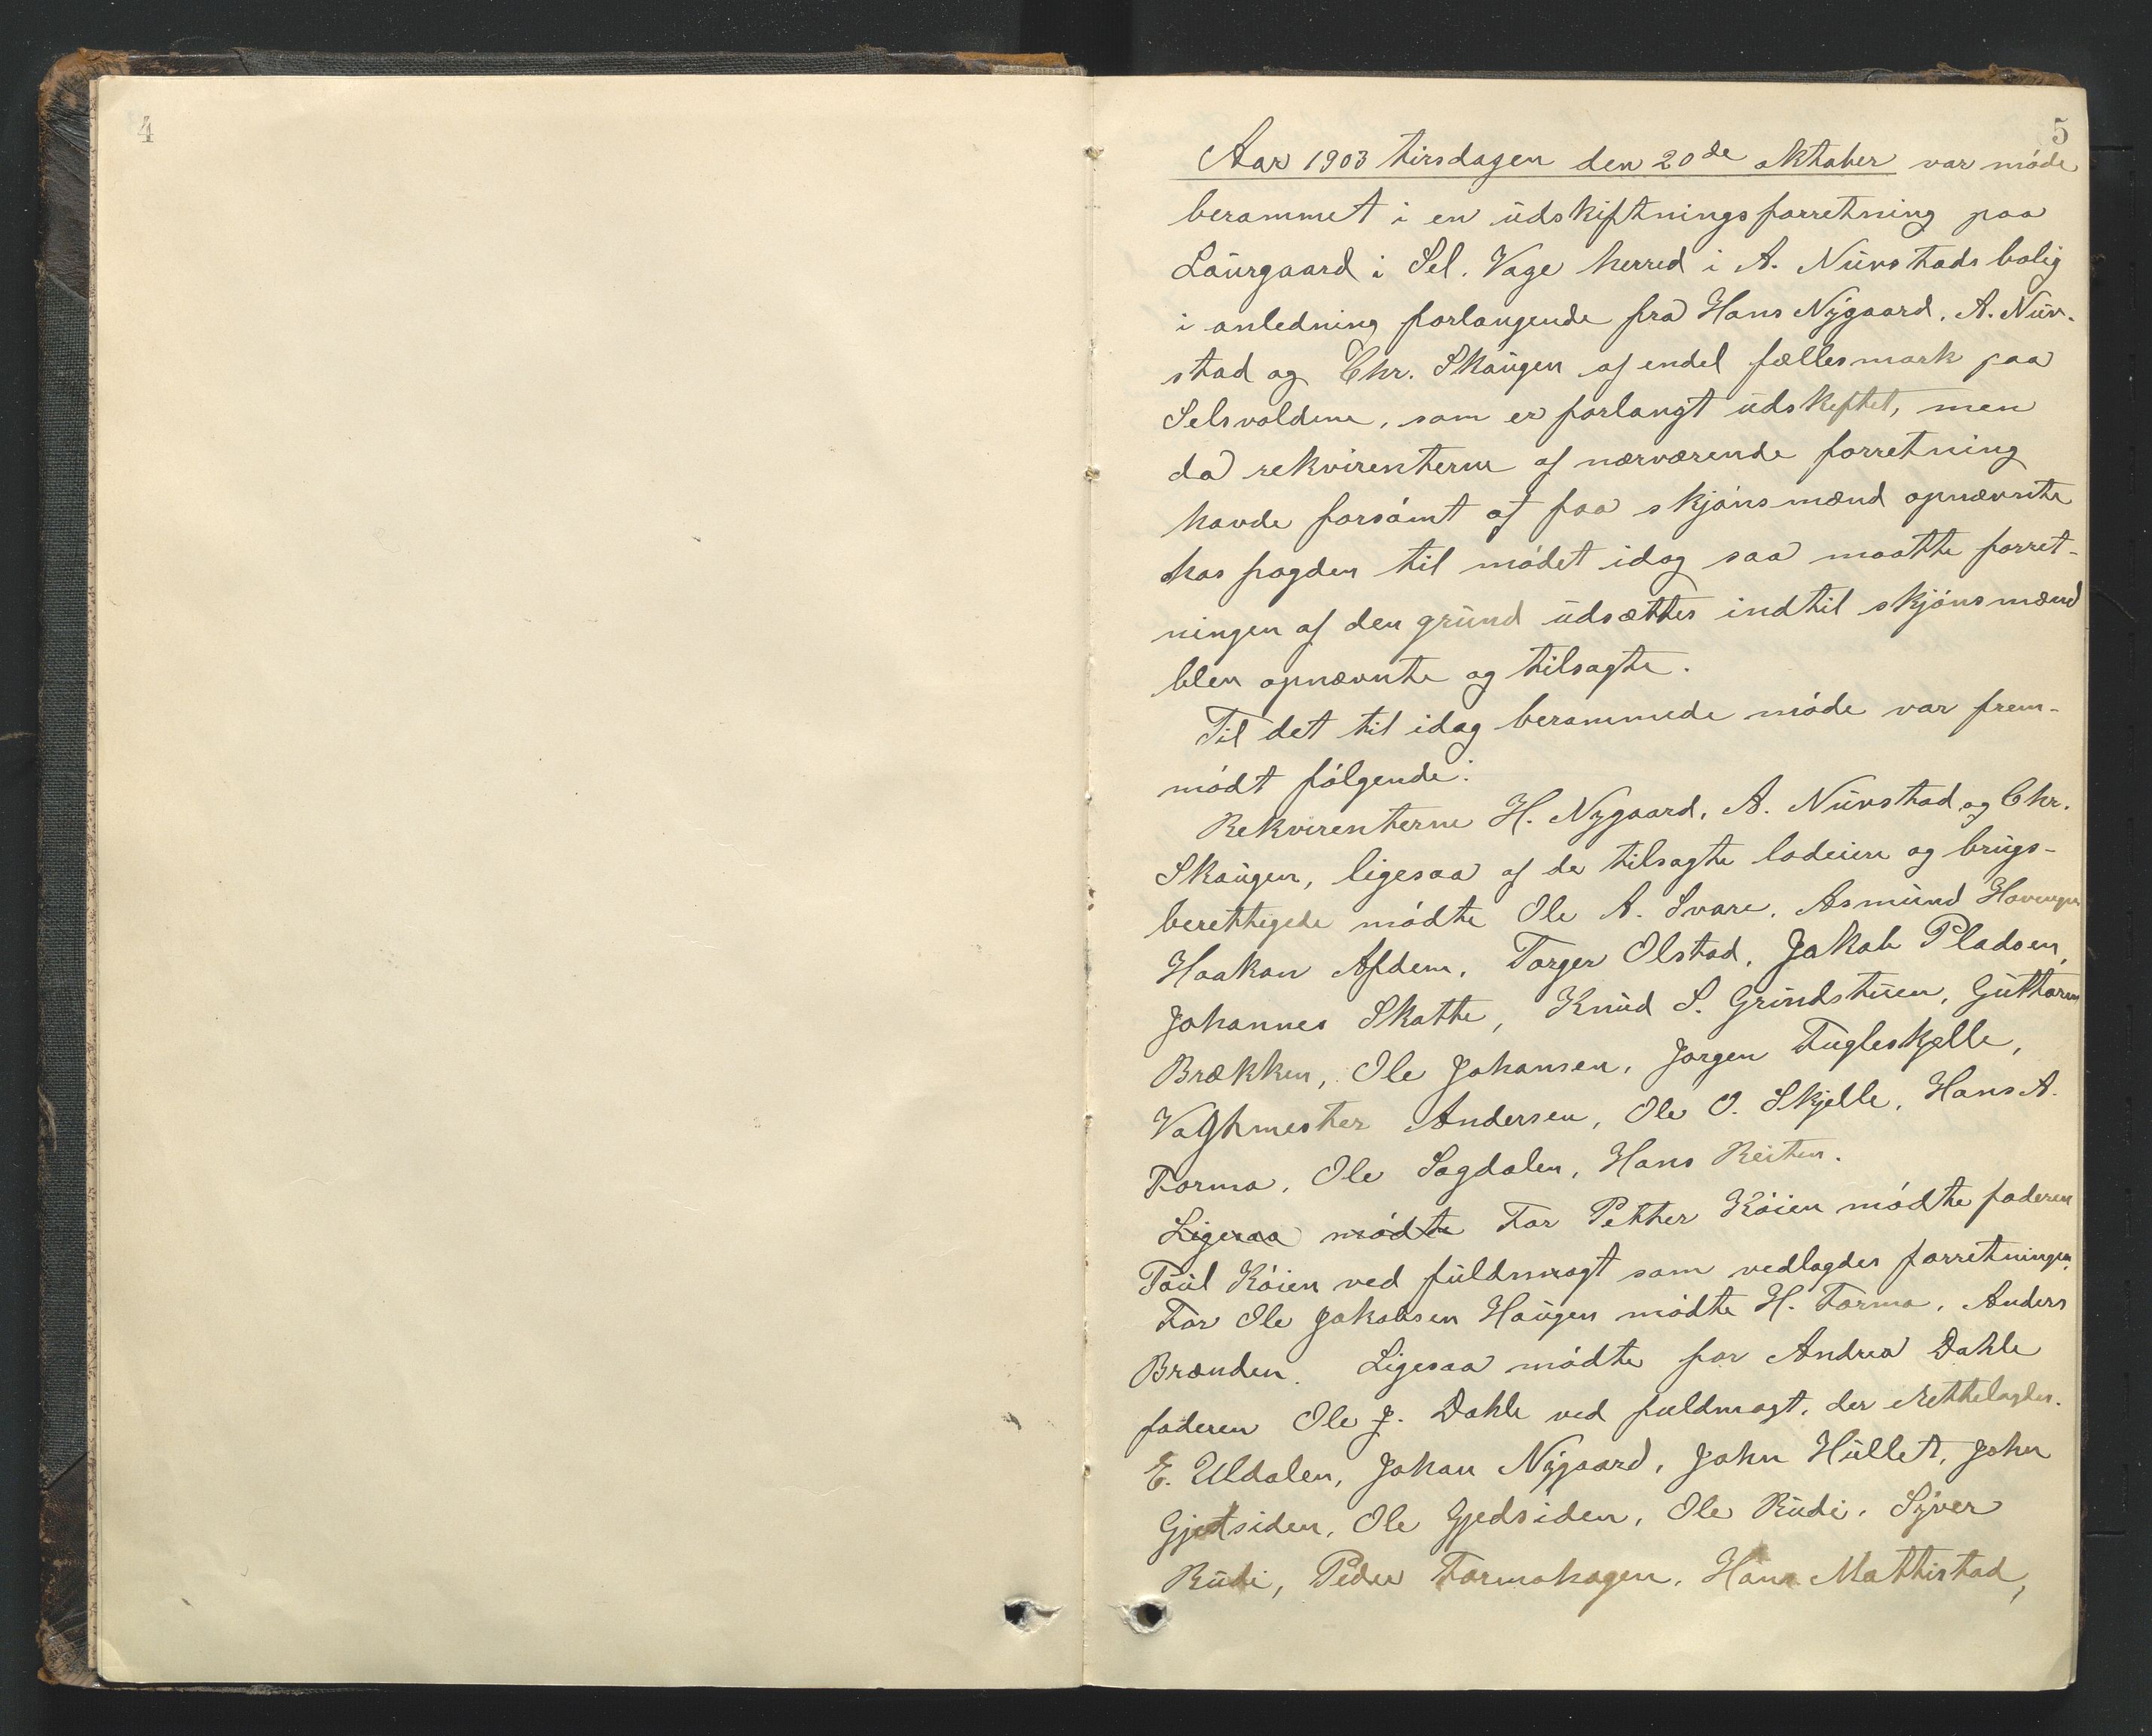 4
5
Aar 1903 tirsdagen den 20de oktober var møde
berammet i en udskiftningsforretning paa
Laurgaard i Sel. Vage herred i A. Nurstads bolig
i anledning forlangende fra Hans Nygaard, A. Nur-
stad og Chr. Skaugen af endel fællesmark paa
Selsvoldene, som er forlangt udskiftet, men
da rekvirenterne af nærværende forretning
havde forsømt af faa skjønsmænd opnævnte
hos fogden til mødet idag saa maatte forret-
ningen af den grund udsættes indtil skjønsmænd
blen opnævnte og tilsagte.
Til det til idag berammede møde var frem-
mødt følgende:
Rekvirenterne H. Nygaard, A. Nurstad og Chr.
Skaugen, ligesaa af de tilsagte lodeiere og brugs-
berettigede mødte Ole A. Svare, Asmund
Haakon Afdem, Torger Olstad, Jakob Pladsen,
Johannes Skotte, Knud S. Grindstuen, Guttorm
Brækken, Ole Johansen, Jørgen Fugleskjelle,
Vagtmester Andersen, Ole O. Skjelle, Hans A.
Forma, Ole Sagdalen, Hans Reiten.
Ligesaa mødte For Petter Køien mødte faderen
Paul Køien ved fuldmagt som vedlagdes forretningen.
For Ole Jakobsen Haugen mødte H. Forma, Anders
Brænden. Ligesaa mødte for Andrea Dahle
faderen Ole J. Dahle ved fuldmagt, der rettelagdes.
E. Uldalen, Johan Nygaard, John Hullet, John
Gjetsiden, Ole Gjedsiden, Ole Rudi, Syver
Rudi, Peder Formohagen, Hans Mattistad,